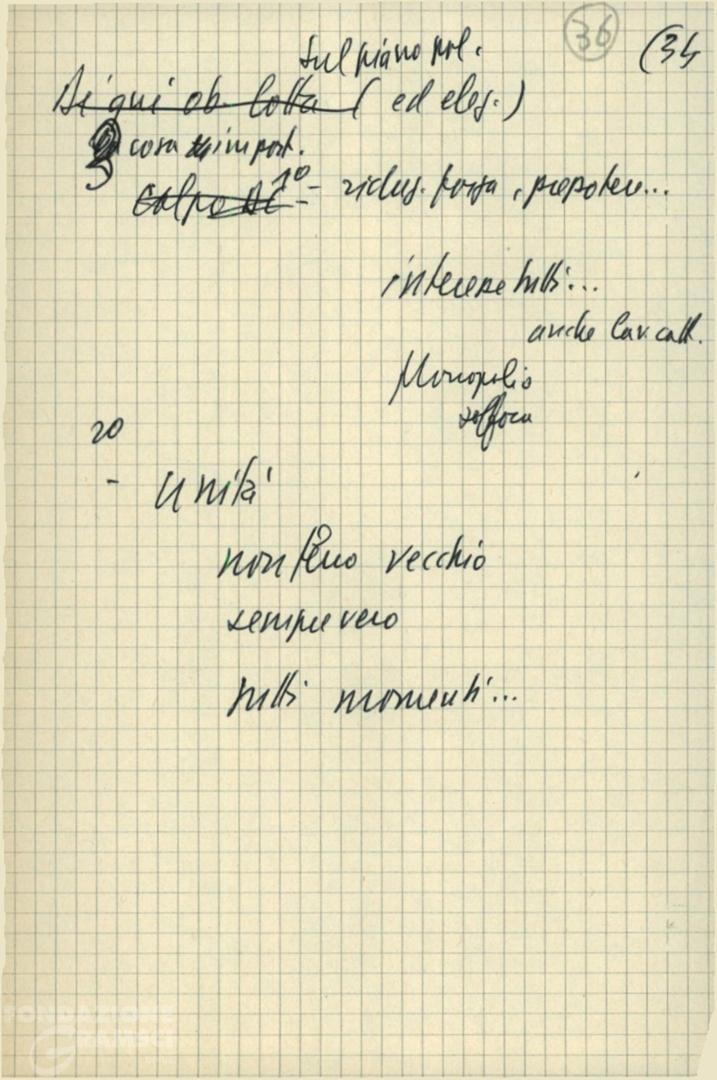 36
(34
Sul piano pol.
Di qui ob. lotta ( ed eleg.)
3 cosa import.
Colpo di 1º - riclus. forza, prepoten...
interesse tutti...
anche lav. catt.
Monopolio
soffoca
2º
- unità
non fino vecchio
sempre vero
tutti momenti...
FONDAZIONE
GRAMSCI